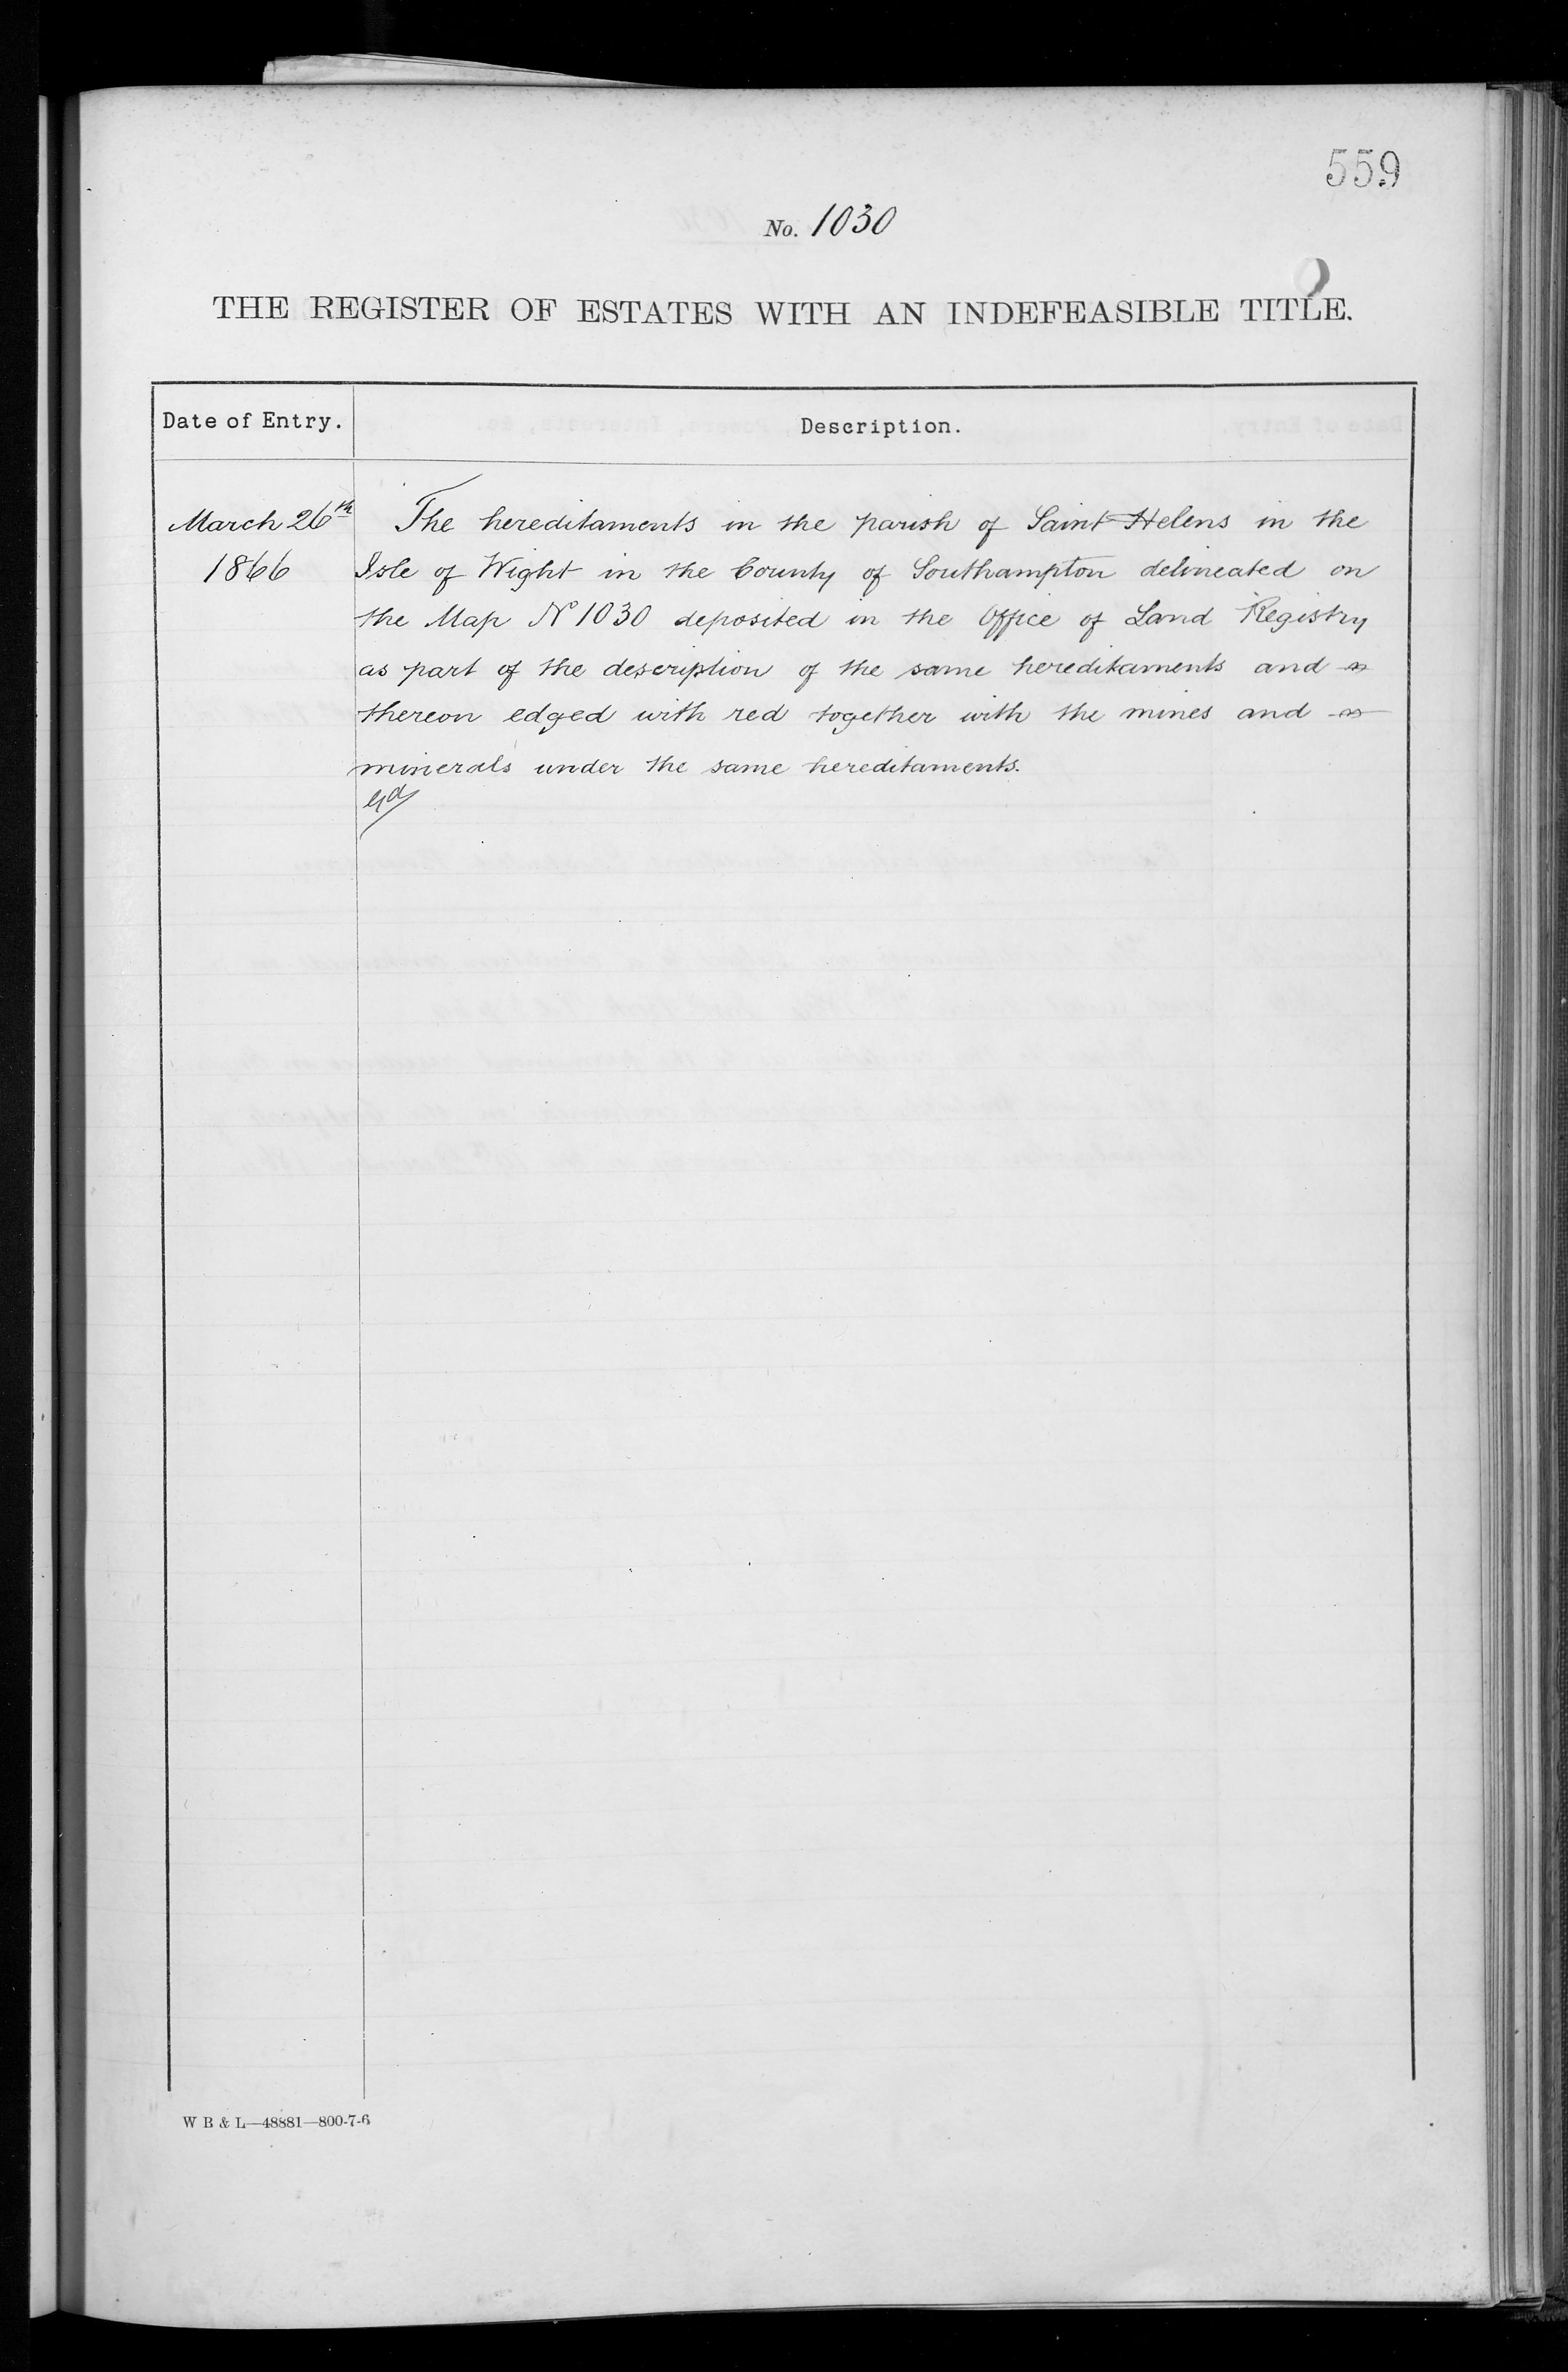 559
No. 1030
THE REGISTER OF ESTATES WITH AN INDEFEASIBLE TITLE.
Date of Entry. Description.
March 26th The hereditaments in the parish of Saint Helens in the
1866 Isle of Wight in the County of Southampton delineated on
the Map No 1030 deposited in the Office of Land Registry
as part of the description of the same hereditaments and
thereon edged with red together with the mines and
minerals under the same hereditaments.
W B & L—48881—800-7-6